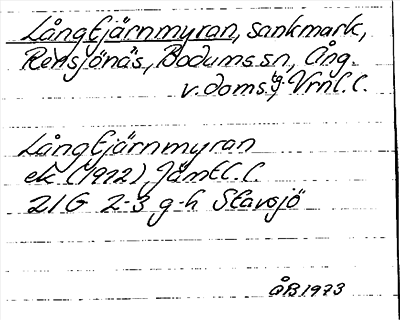 Långtjärnmyran, sankmark,
Rensjönäs, Bodums sn, Ång.
v. doms.g. Vrnl. l.
Långtjärnmyran
ek (1912) Jämtl. l.
21G 2-3 g-h Stavsjö
ÅB 1973